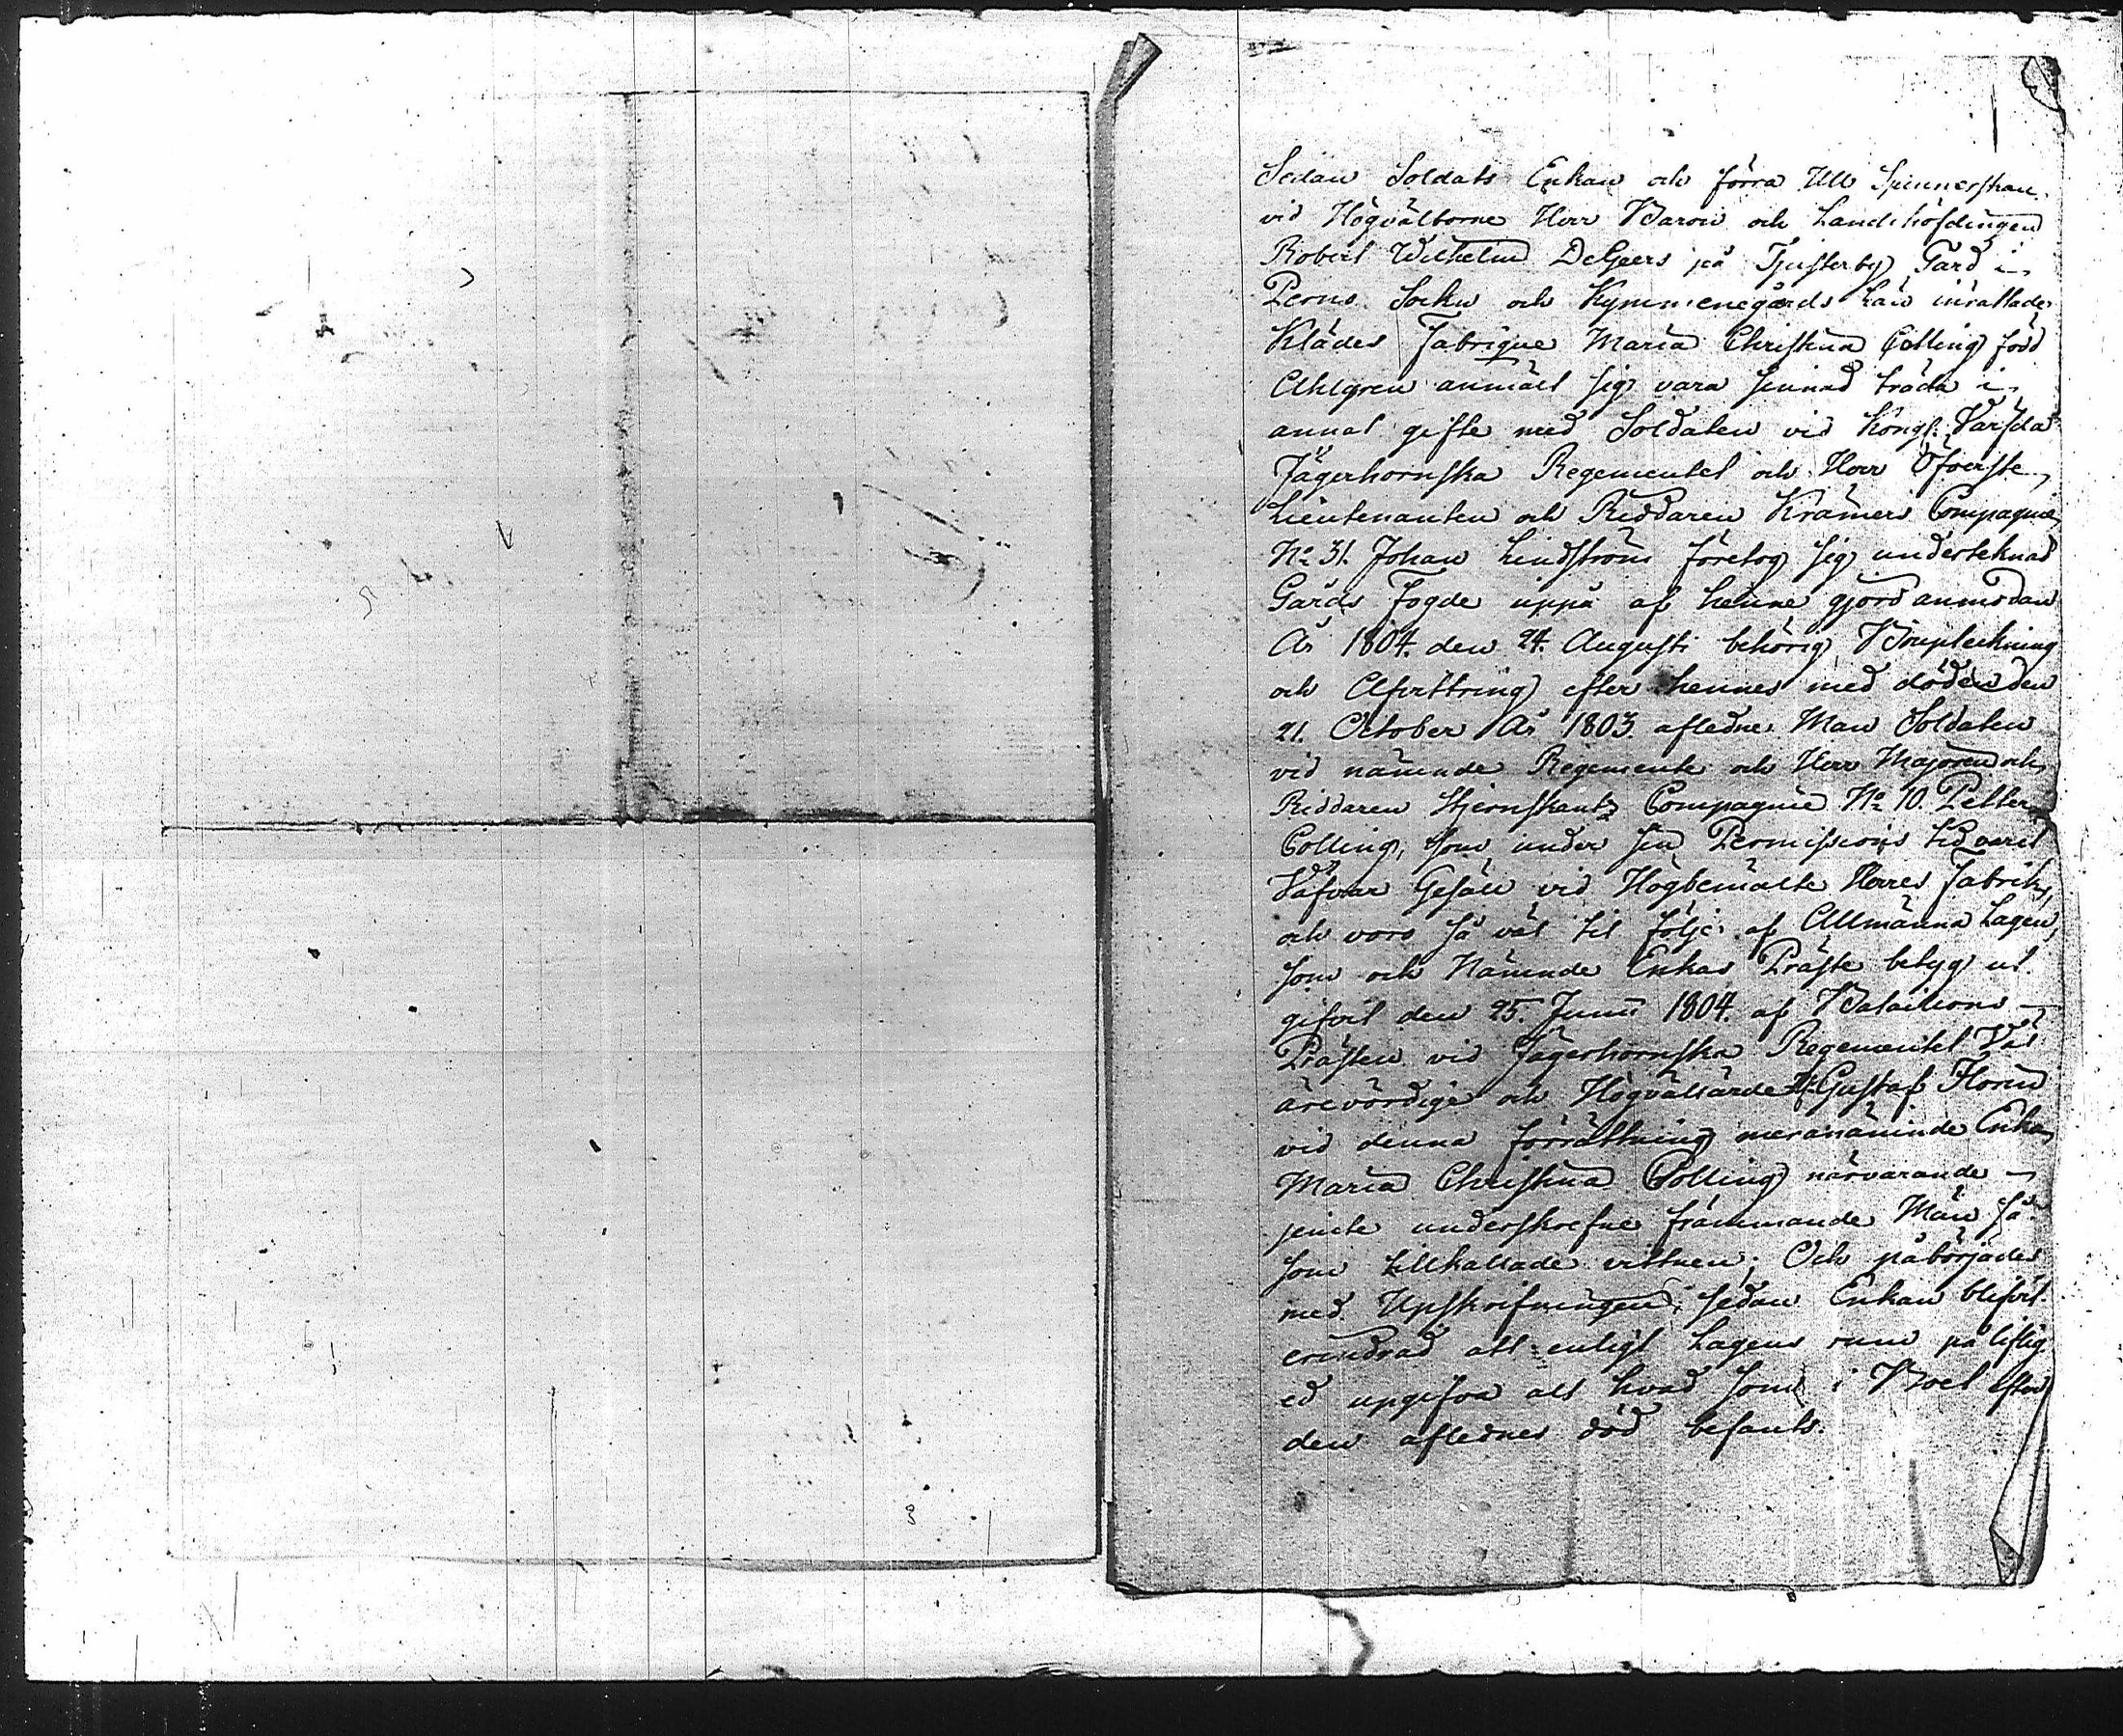 Sedan Soldats Enkan och förra Ull Spinnerskan
vid Högvälborne Herr Baron och Landshöfdingen
Robert Wilhelm DeGeers på Tjusterby Gård i
Perno Sockn och Kymmenegårds Län inrättade
Klädes Fabrique Maria Christina Colling född
Ahlgren anmält sig vara sinnad träda i
annat gifte med Soldaten vid Kongl. Värfda
Jägerhornska Regementet och Herr Öfverste
Lieutenanten och Riddaren Krämers Compagnie
No 31. Johan Lindström företog sig underteknad
Gårds Fogde uppå af henne gjord anmodan
År 1804. den 24. Augusti behörig Boupteckning
och Afvittring efter hennes med döden den
21. October År 1803 afledne Man Soldaten
vid nämnde Regemente och Herr Majoren och
Riddaren Stjernskantz Compagnie No 10. Petter
Colling, som under sin Permissions tid varit
Väfvar Gesäll vid Högbemälte Herres Fabrik,
och voro så väl til följe af Allmänna Lagen,
som och Nämnde Enkas Präste betyg ut
gifvit den 25. Junii 1804. af Bataillons
Prästen vid Jägerhornska Regementet Väl
ärevördige och Högvällärde Hr Gustaf Florin
vid denna förrättning meranämnde Enka
Maria Christina Colling närvarande
jemte underskrefne främmande Män så
som tillkallade vittnen; Och påbörjades
med Upskrifningen, sedan Enkan blifvit
erindrad att enligt Lagens rum på liflig
ed upgifva alt hvad som i Boet efter
den aflednes död befants.